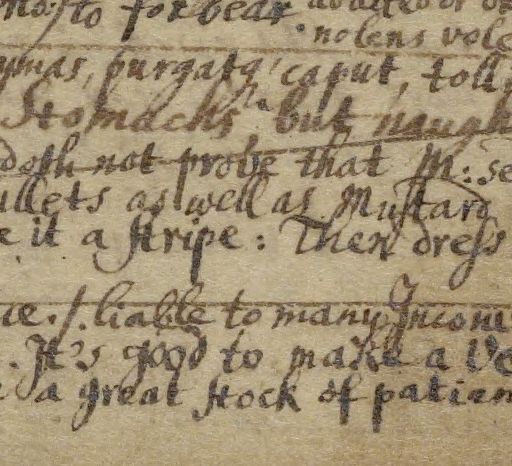 to forbear
nolens vole
ymas, purgatq; caput, toll
Stomachs but naugh
doth not probe that M: se
ullets as well as Mustard
e it a stripe: Then dress
ce./. liable to many Inconv
. It's good to make a Ve
a great stock of patien